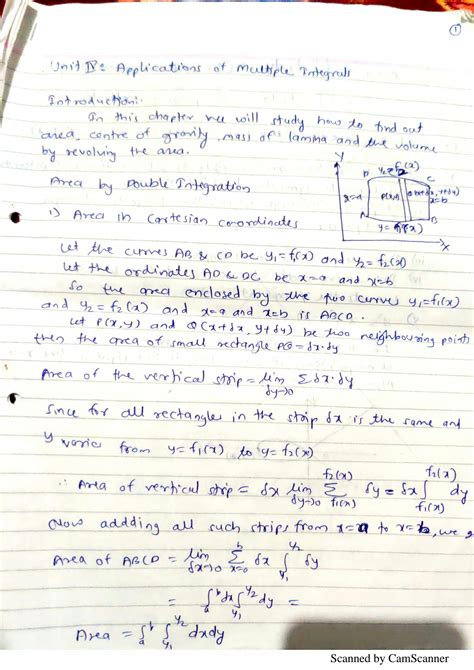 ①
Unit IV: Applications of Multiple Integrals
Introduction:
In this chapter we will study how to find out
area, centre of gravity, mass of lamina and the volume
by revolving the area.
Area by Double Integration
1) Area in Cartesian coordinates
Y
y₂=f₂(x)
D
C
x=a
P(x,y)
x=b
A
B
X
Let the curves AB & CD be y₁=f₁(x) and y₂=f₂(x)
Let the ordinates AD & DC be x=a and x=b
So the area enclosed by the two curve y₁=f₁(x)
and y₂=f₂(x) and x=a and x=b is ABCD.
Let P(x,y) and Q(x+δx, y+δy) be two neighbouring points
then the area of small rectangle PQ=δx·δy
Area of the vertical strip = lim δy→0 Σ δx·δy
Since for all rectangles in the strip δx is the same and
y varie from y=f₁(x) to y=f₂(x)
∴ Area of vertical strip = δx lim δy→0 Σ f₁(x) f₂(x) δy = δx ∫ f₁(x) f₂(x) dy
Now addding all such strips from x=a to x=b, we
Area of ABCD = lim δx→0 Σ x=a b δx ∫ y₁ y₂ δy
= ∫ₐᵇ dx ∫ y₁ y₂ dy =
Area = ∫ₐᵇ ∫ y₁ y₂ dxdy
Scanned by CamScanner